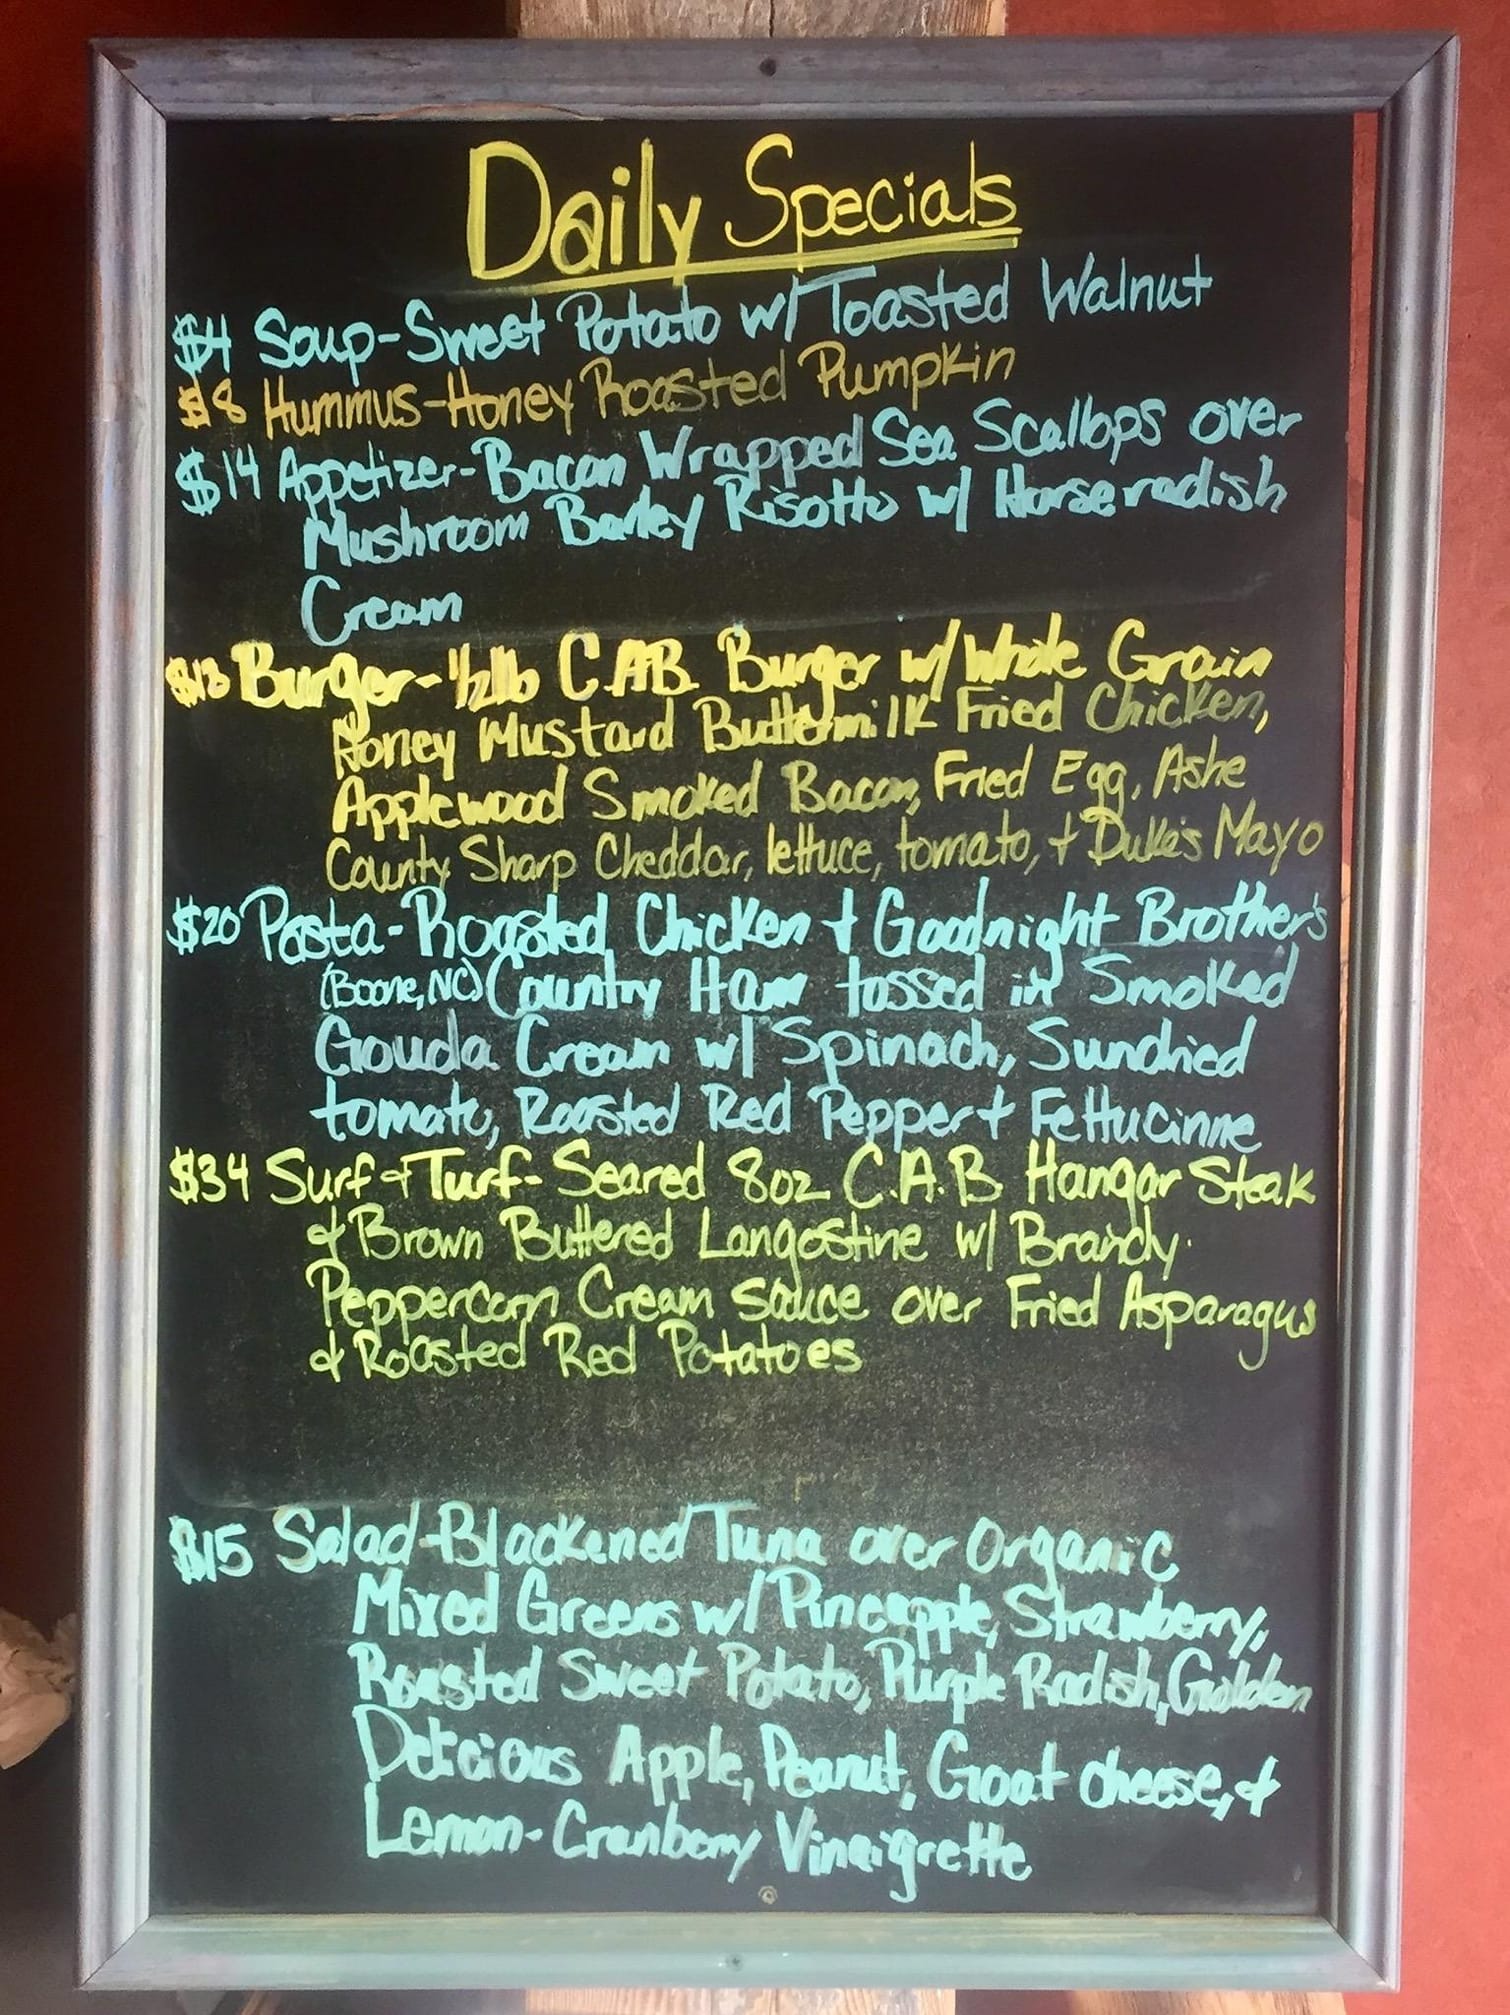 Daily Specials
$4 Soup-Sweet Potato w/ Toasted Walnut
$8 Hummus-Honey Roasted Pumpkin
$14 Appetizer-Bacon Wrapped Sea Scallops over
Mushroom Barley Risotto w/ Horseradish
Cream
$13 Burger-1/2lb C.A.B. Burger w/ Whole Grain
Honey Mustard Buttermilk Fried Chicken,
Applewood Smoked Bacon, Fried Egg, Ashe
County Sharp Cheddar, lettuce, tomato, + Duke's Mayo
$20 Pasta-Roasted Chicken + Goodnight Brother's
(Boone, NC) Country Ham tossed in Smoked
Gouda Cream w/ Spinach, Sundried
tomato, Roasted Red Pepper + Fettucinne
$34 Surf + Turf- Seared 8oz C.A.B. Hangar Steak
+ Brown Buttered Langostine w/ Brandy
Peppercorn Cream Sauce over Fried Asparagus
+ Roasted Red Potatoes
$15 Salad-Blackened Tuna over Organic
Mixed Greens w/ Pineapple, Strawberry,
Roasted Sweet Potato, Purple Radish, Golden
Delicious Apple, Peanut, Goat cheese, +
Lemon-Cranberry Vinaigrette